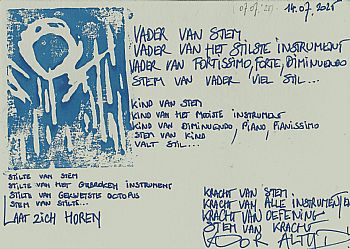 (07.07.'21) 14.07.2021
VADER VAN STEM
VADER VAN HET STILSTE INSTRUMENT
VADER VAN FORTISSIMO, FORTE, DIMINUENDO
STEM VAN VADER VIEL STIL...
KIND VAN STEM
KIND VAN HET MOOISTE INSTRUMENT
KIND VAN DIMINUENDO, PIANO, PIANISSIMO
STEM VAN KIND
VALT STIL...
STILTE VAN STEM
STILTE VAN HET GEBROKEN INSTRUMENT
STILTE VAN GEKWETSTE OCTOPUS
STEM VAN STILTE...
LAAT ZICH HOREN
KRACHT VAN STEM
KRACHT VAN ALLE INSTRUMENTEN
KRACHT VAN OEFENING
STEM VAN KRACHT
VOOR ALTIJD